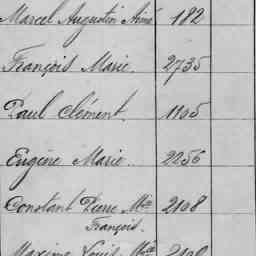 Marcel Augustin Aimé 182
François Marie. 2735
Paul Clément. 1105
Eugène Marie. 2256
Constant Pierre Mie 2108
François.
Maxime Louis